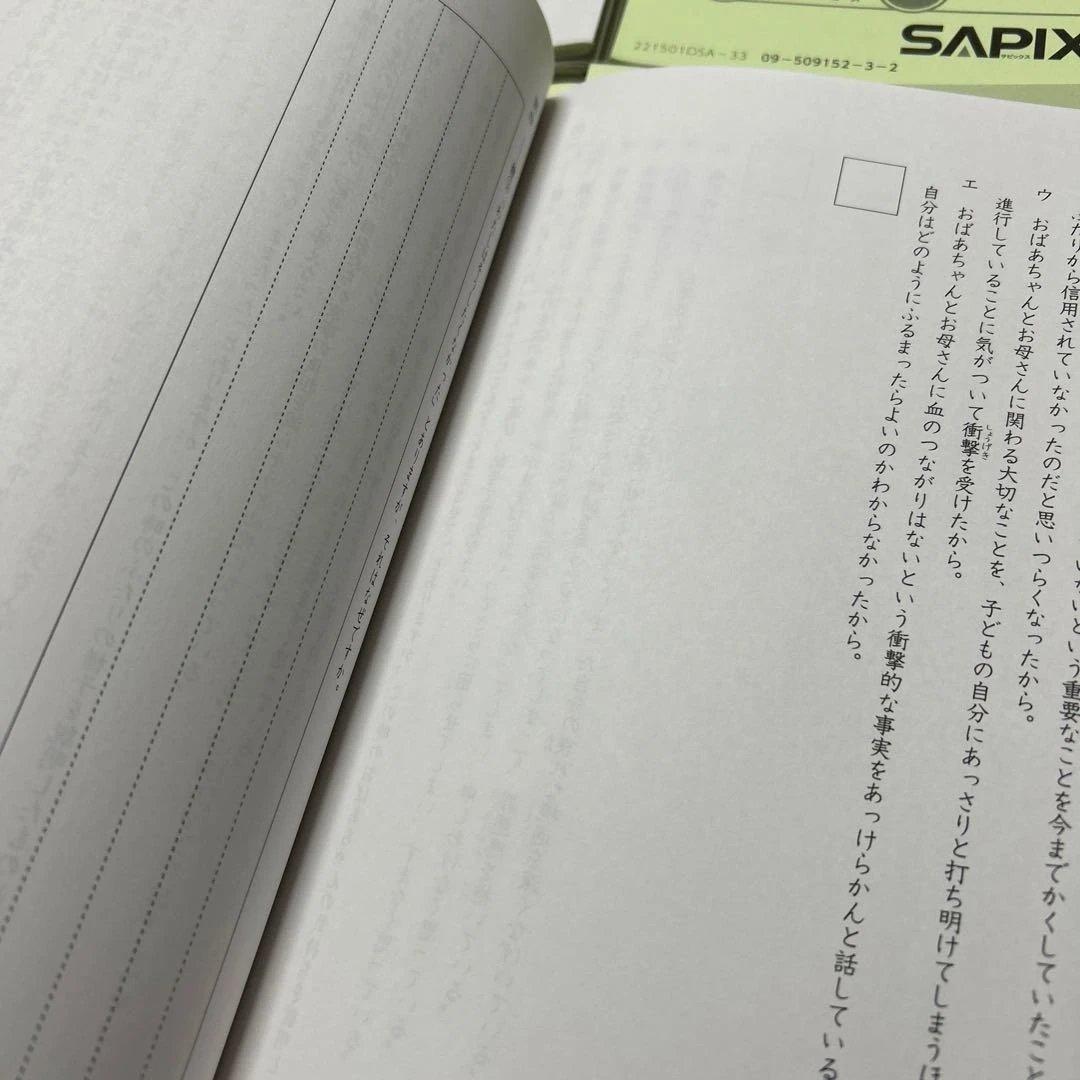 SAPIX
サピックス
221501D5A-33 09-509152-3-2
いないという重要なことを今までかくしていたこと
ふたりから信用されていなかったのだと思いつらくなったから。
ウ おばあちゃんとお母さんに関わる大切なことを、子どもの自分にあっさりと打ち明けてしまうほ
進行していることに気がついて衝撃を受けたから。
しょうげき
エ おばあちゃんとお母さんに血のつながりはないという衝撃的な事実をあっけらかんと話している
自分はどのようにふるまったらよいのかわからなかったから。
とありますが、それはなぜですか。